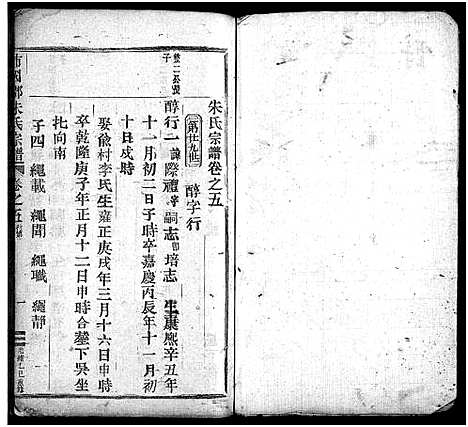 朱氏宗譜卷之五
第廿九世 醇字行
醇行二諱際禮字嗣志號培志生康熙辛丑年
十一月初二日子時卒嘉慶丙辰年十一月初
十日戌時
娶俞村李氏生雍正庚戌年三月十六日申時
卒乾隆庚子年正月十二日申時合塟下吳坐
北向南
子四 繩載 繩聞 繩職 繩靜
朱氏宗譜 卷之五 一